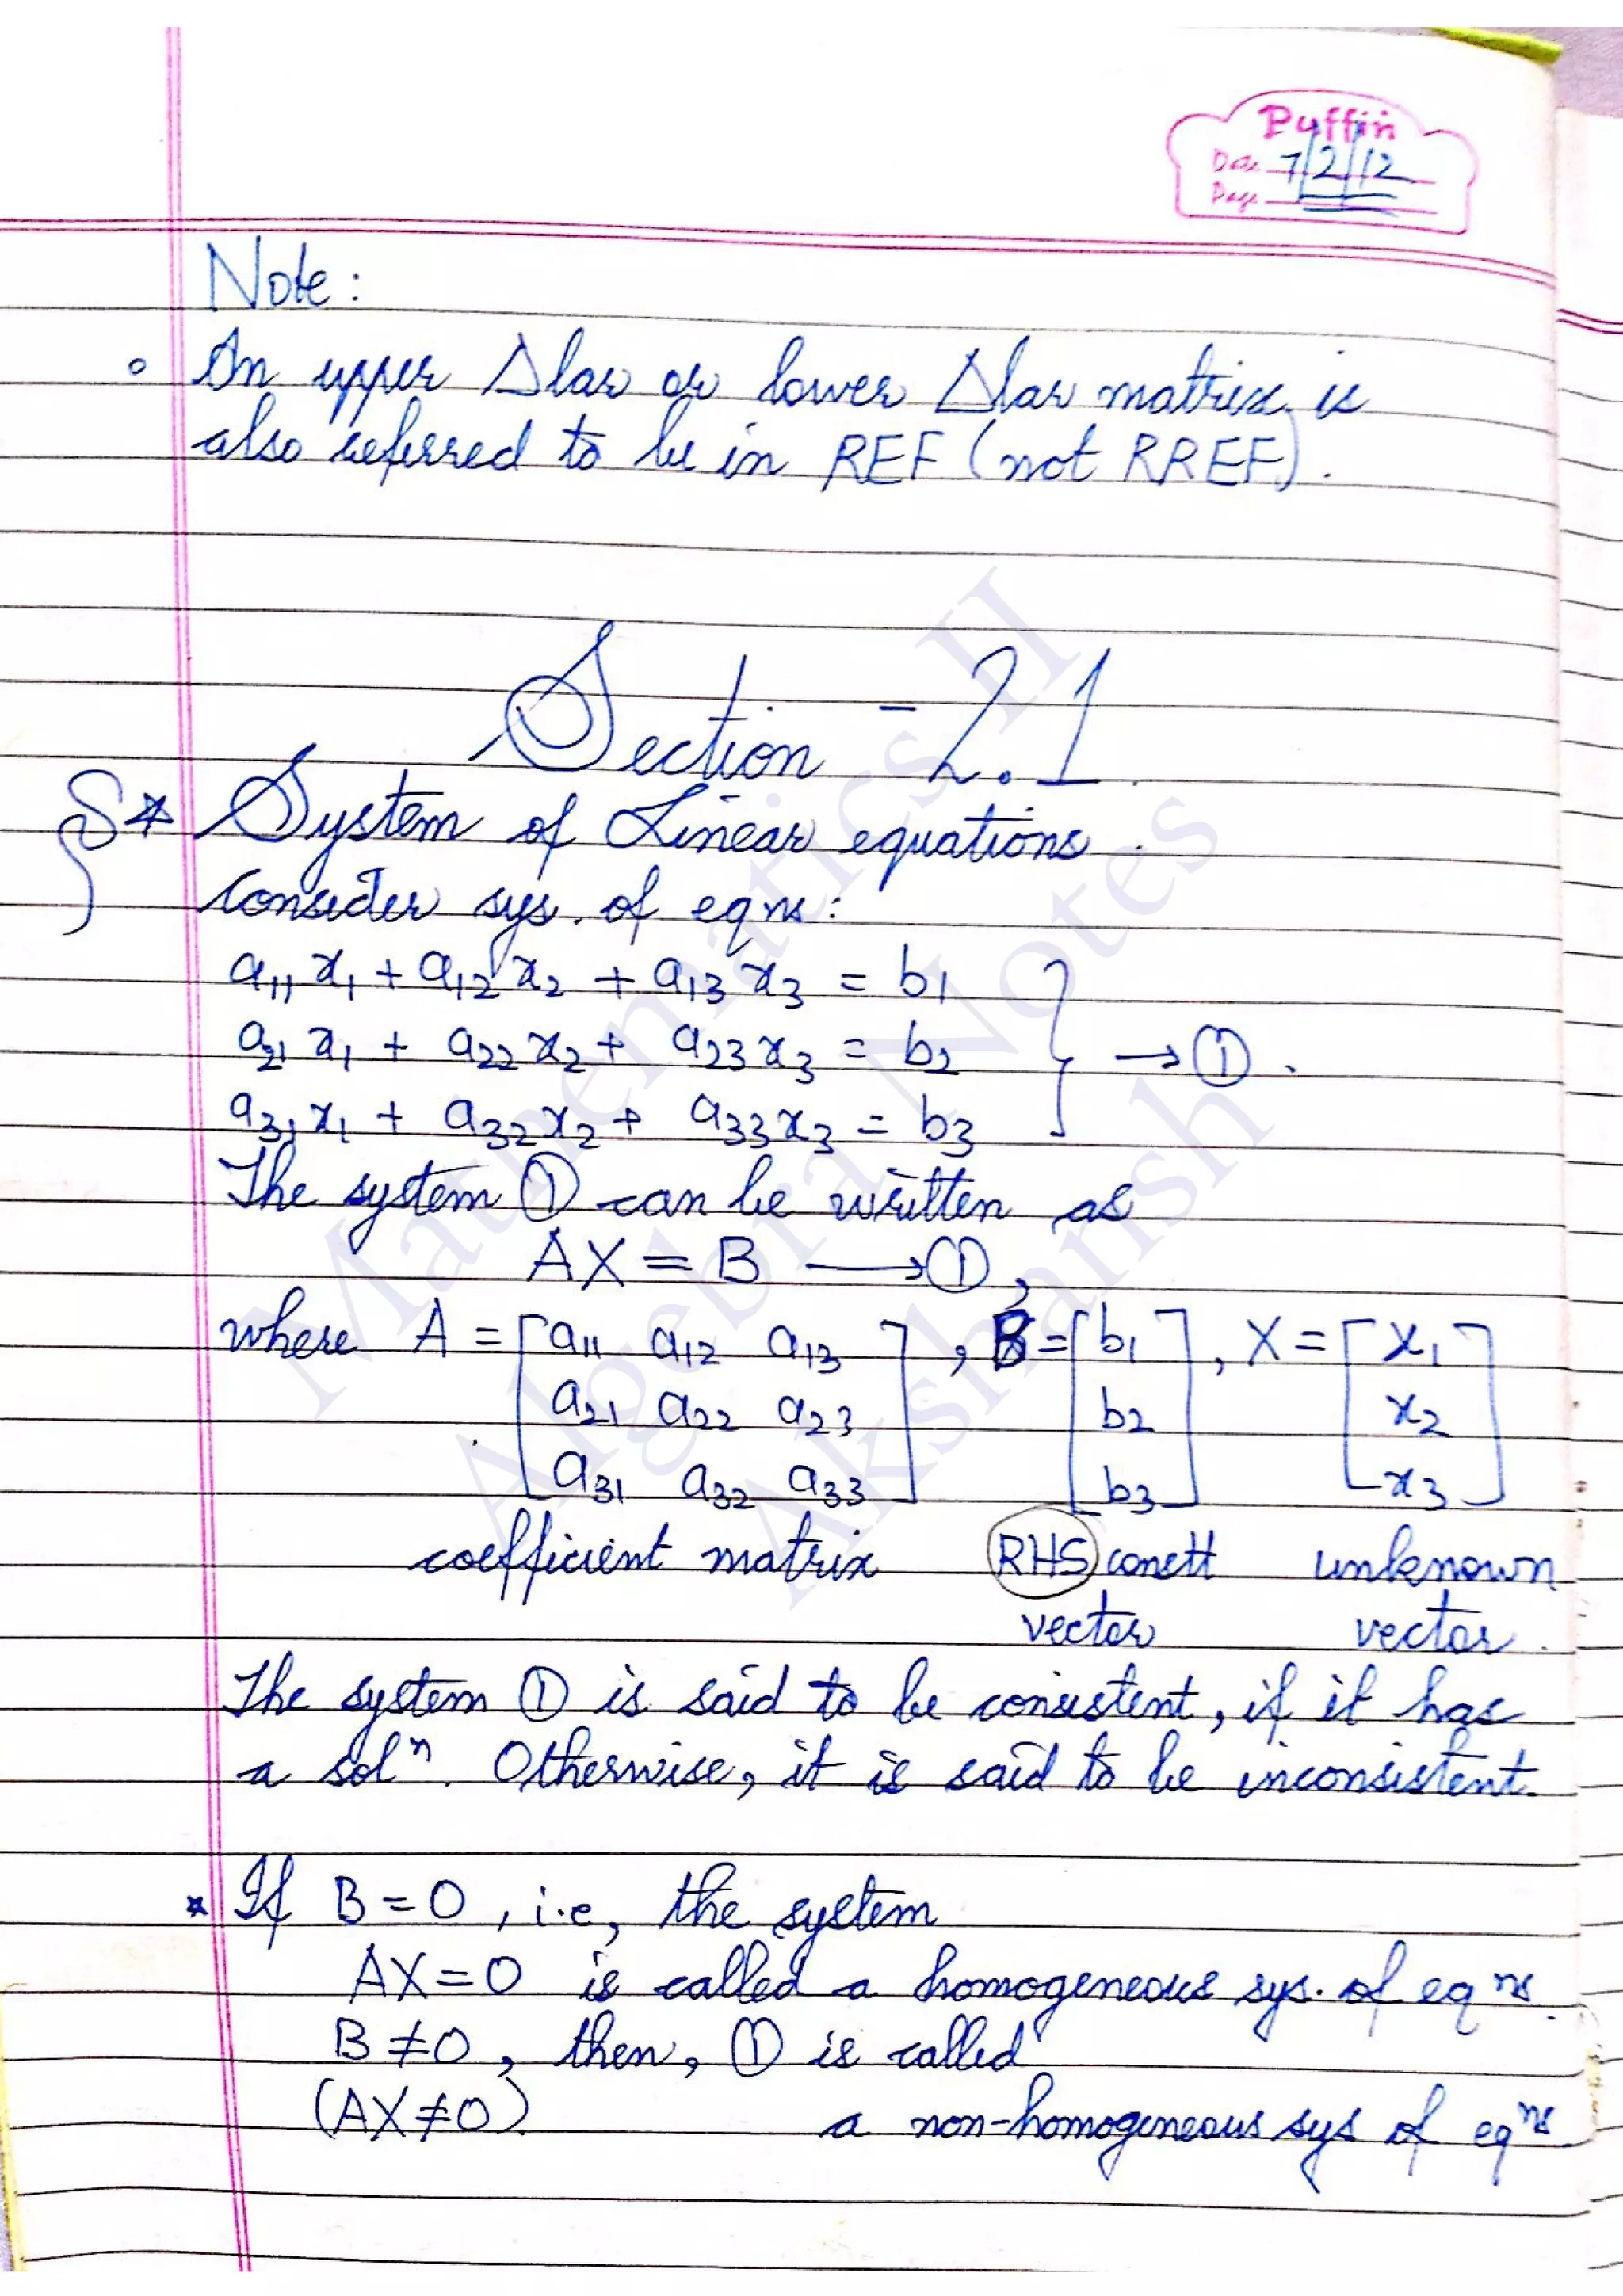 Puffin
Date 7/2/12
Page
Note:
∘ An upper Δlar or lower Δlar matrix is
also referred to be in REF (not RREF).
Section - 2.1
* System of Linear equations.
Consider sys. of eqns:
a₁₁x₁ + a₁₂x₂ + a₁₃x₃ = b₁
a₂₁x₁ + a₂₂x₂ + a₂₃x₃ = b₂ } → ①.
a₃₁x₁ + a₃₂x₂ + a₃₃x₃ = b₃
The system ① can be written as
AX = B → ①,
where A = [a₁₁ a₁₂ a₁₃ , B = [b₁] , X = [x₁
a₂₁ a₂₂ a₂₃ b₂ x₂
a₃₁ a₃₂ a₃₃] b₃ x₃]
coefficient matrix RHS constt unknown
vector vector.
The system ① is said to be consistent, if it has
a solⁿ. Otherwise, it is said to be inconsistent.
* If B = 0, i.e, the system
AX = 0 is called a homogeneous sys. of eqⁿˢ.
B ≠ 0, then, ① is called
(AX ≠ 0) a non-homogeneous sys of eqⁿˢ.
Mathematics II
Algebra Notes
Akshansh